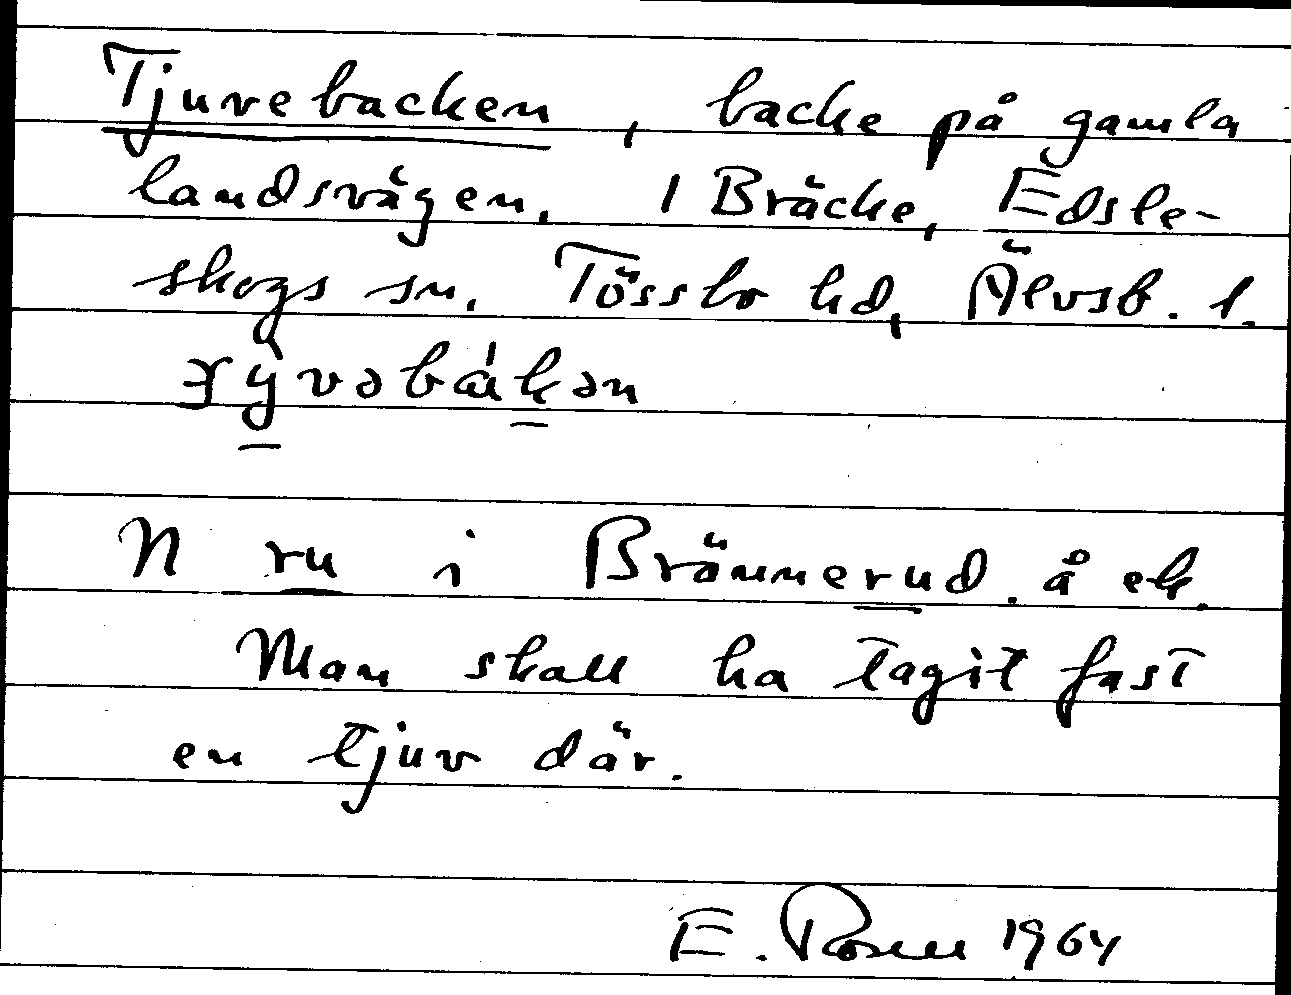 Tjuvebacken, backe på gamla
landsvägen. I Bräcke, Edsle-
skogs sn. Tössbo hd, Älvsb. l.
N ru i Brännerud. å ek.
Man skall ha tagit fast
en tjuv där.
E. Rosell 1964